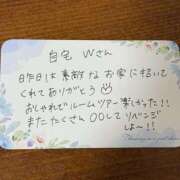 自宅 Wさん
昨日は素敵なお家に招いて
くれてありがとう
おしゃれでルームツアー楽しかった!!
またたくさん〇〇してリベンジ
しよー!!